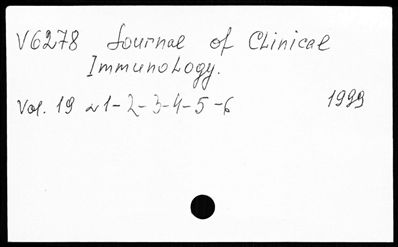 V6278 Journal of Clinical
Immunology.
Vol. 19 N1-2-3-4-5-6 1999